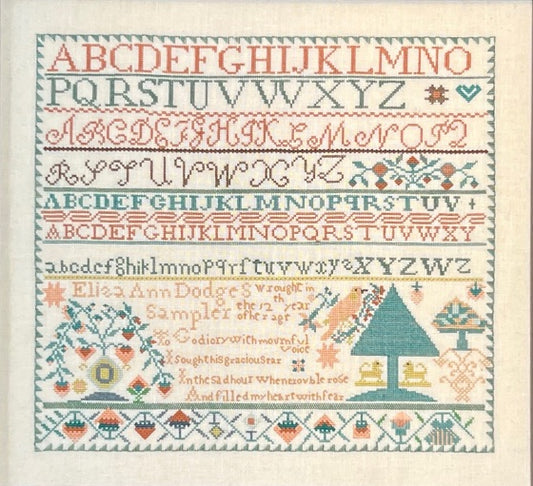 ABCDEFGHIJKLMNO
PQRSTUVWXYZ
ABCDEFGHIKLMNOPQ
RSTUVWXYZ
ABCDEFGHIJKLMNOPQRSTUV
ABCDEFGHIJKLMNOPQRSTUVWXY
abcdefghiklmnopqrſtuvwxyzXYZWZ
Eliza Ann Dodges wrought in
Sampler & the 12th year
of her age
God ion with mournful voice
I sought his gracious ear
In the sad hour when trouble rose
And filled my heart with fear